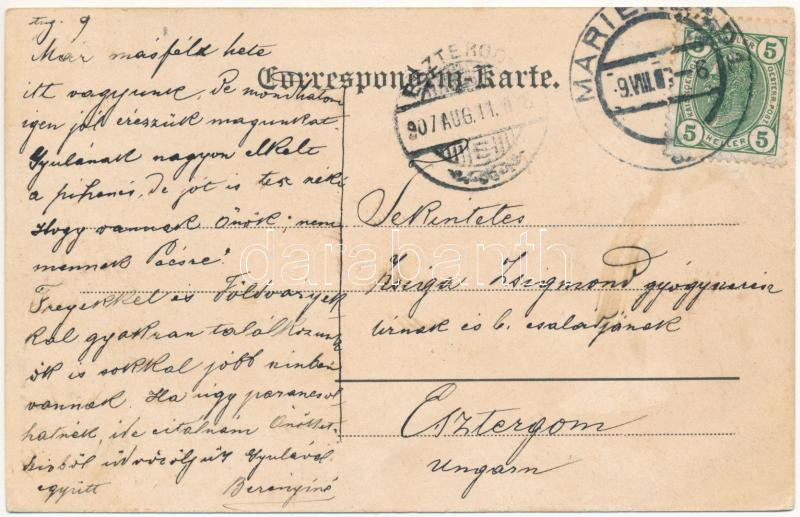 Aug. 9
Már másfél hete
itt vagyunk, de mondhatom
igen jól érezzük magunkat.
Gyulának nagyon elkelt
a pihenés, de jót is tesz néki
Hogy vannak Önök; nem
mennek Pécsre?
Freyékkel és Földváryék
kal gyakran találkozunk
ők is sokkal jobb
vannak. Ha úgy parancsol
hatnék, ide citálnám Önöket
üdvözöljük Gyulával
együtt Berényiné
Correspondenz-Karte.
ESZTERGOM
907 AUG. 11.
MARIENBAD 1
5 HELLER 5
5 HELLER 5
Tekintetes
Zsiga Zsigmond gyógyszerész
úrnak és b. családjának
Esztergom
Ungarn
darabanth